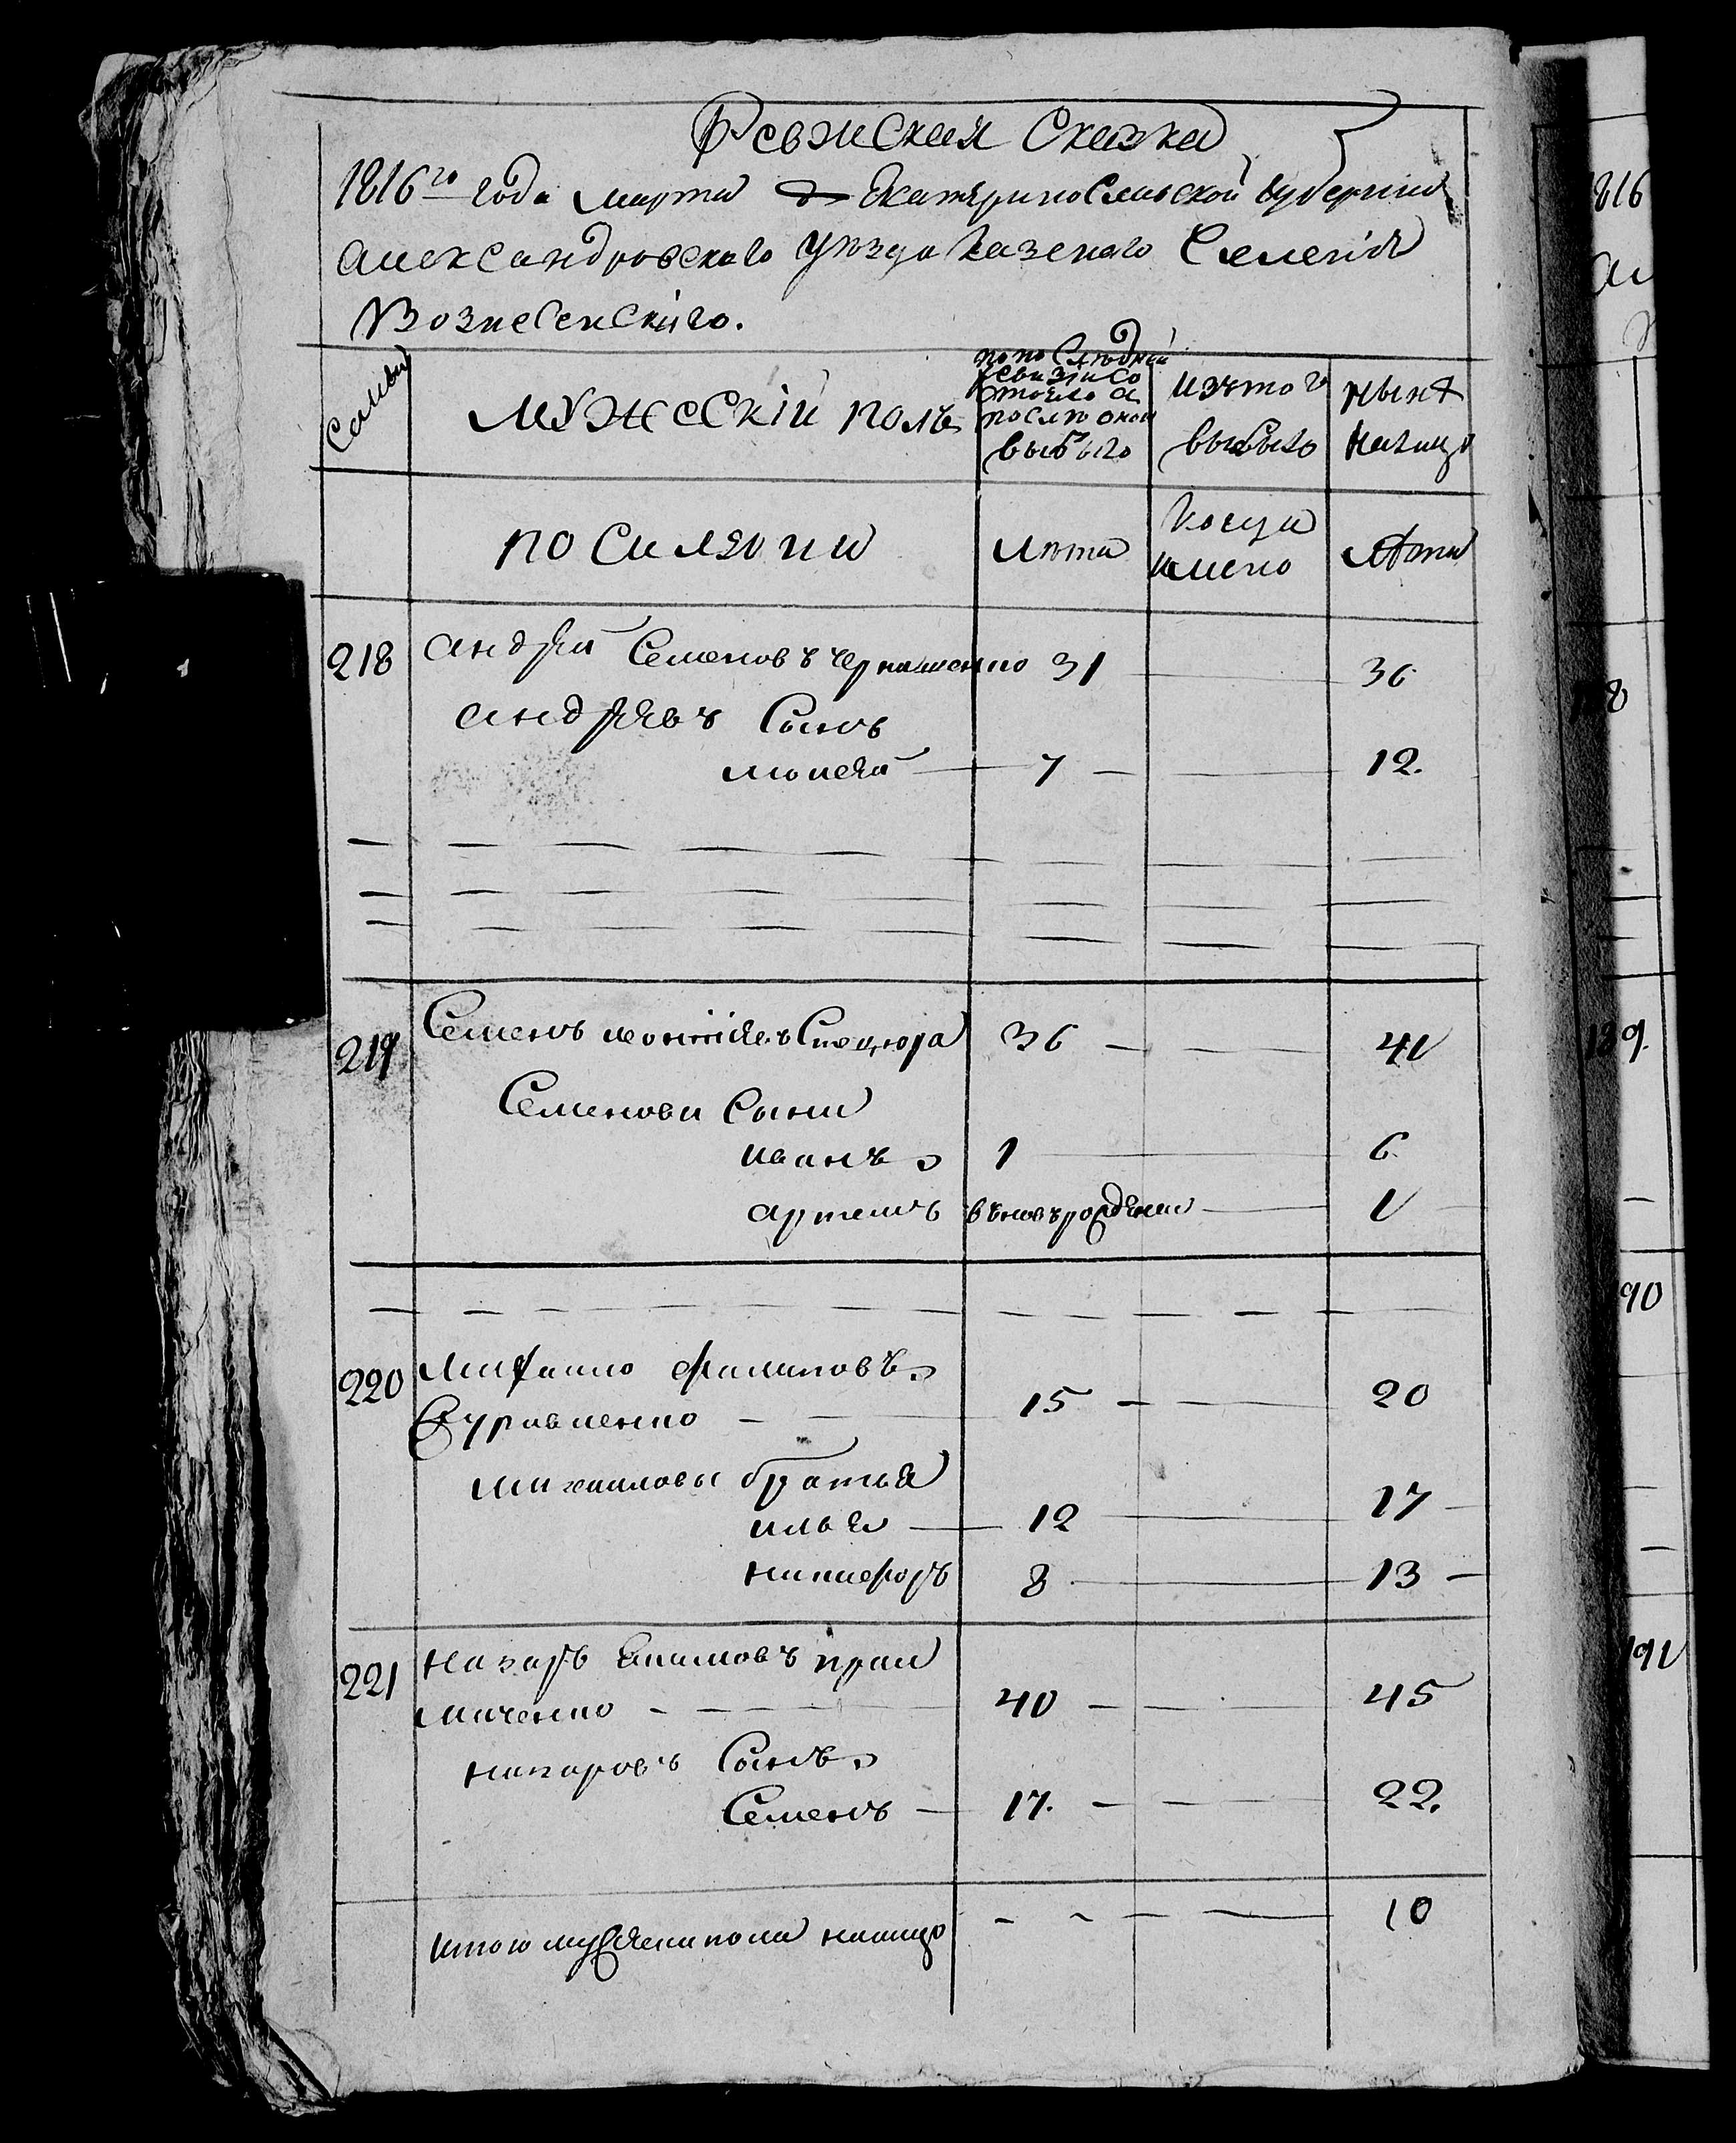 Ревизская Сказка
1816го года марта Екатеринославской губернии
александровскаго уѣзда казенаго Селенія
Вознесенскаго.
Семьи
мужескій полъ
по послѣдней
ревизіи со
стояло и
послѣ оной
выбыло
изъ того
выбыло
нынѣ
налицо
лѣта
когда
имено
лѣта
218 андрей Семеновъ черкашенко 31 36
андреевъ Сынъ
мойсей 7 12.
219 Семенъ Спецюра 36 41
Семенови Сини
иванъ 1 6
артемъ въновърожденни 1
220 михаило филиповъ 15 20
журавленко
михаиловы братья
илья 12 17
никифоръ 8 13
221 назаръ екимовъ 40 45
назаровъ Сынъ
Семенъ 17. 22.
итого мужеска пола налицо 10
1816
188
189.
190
191